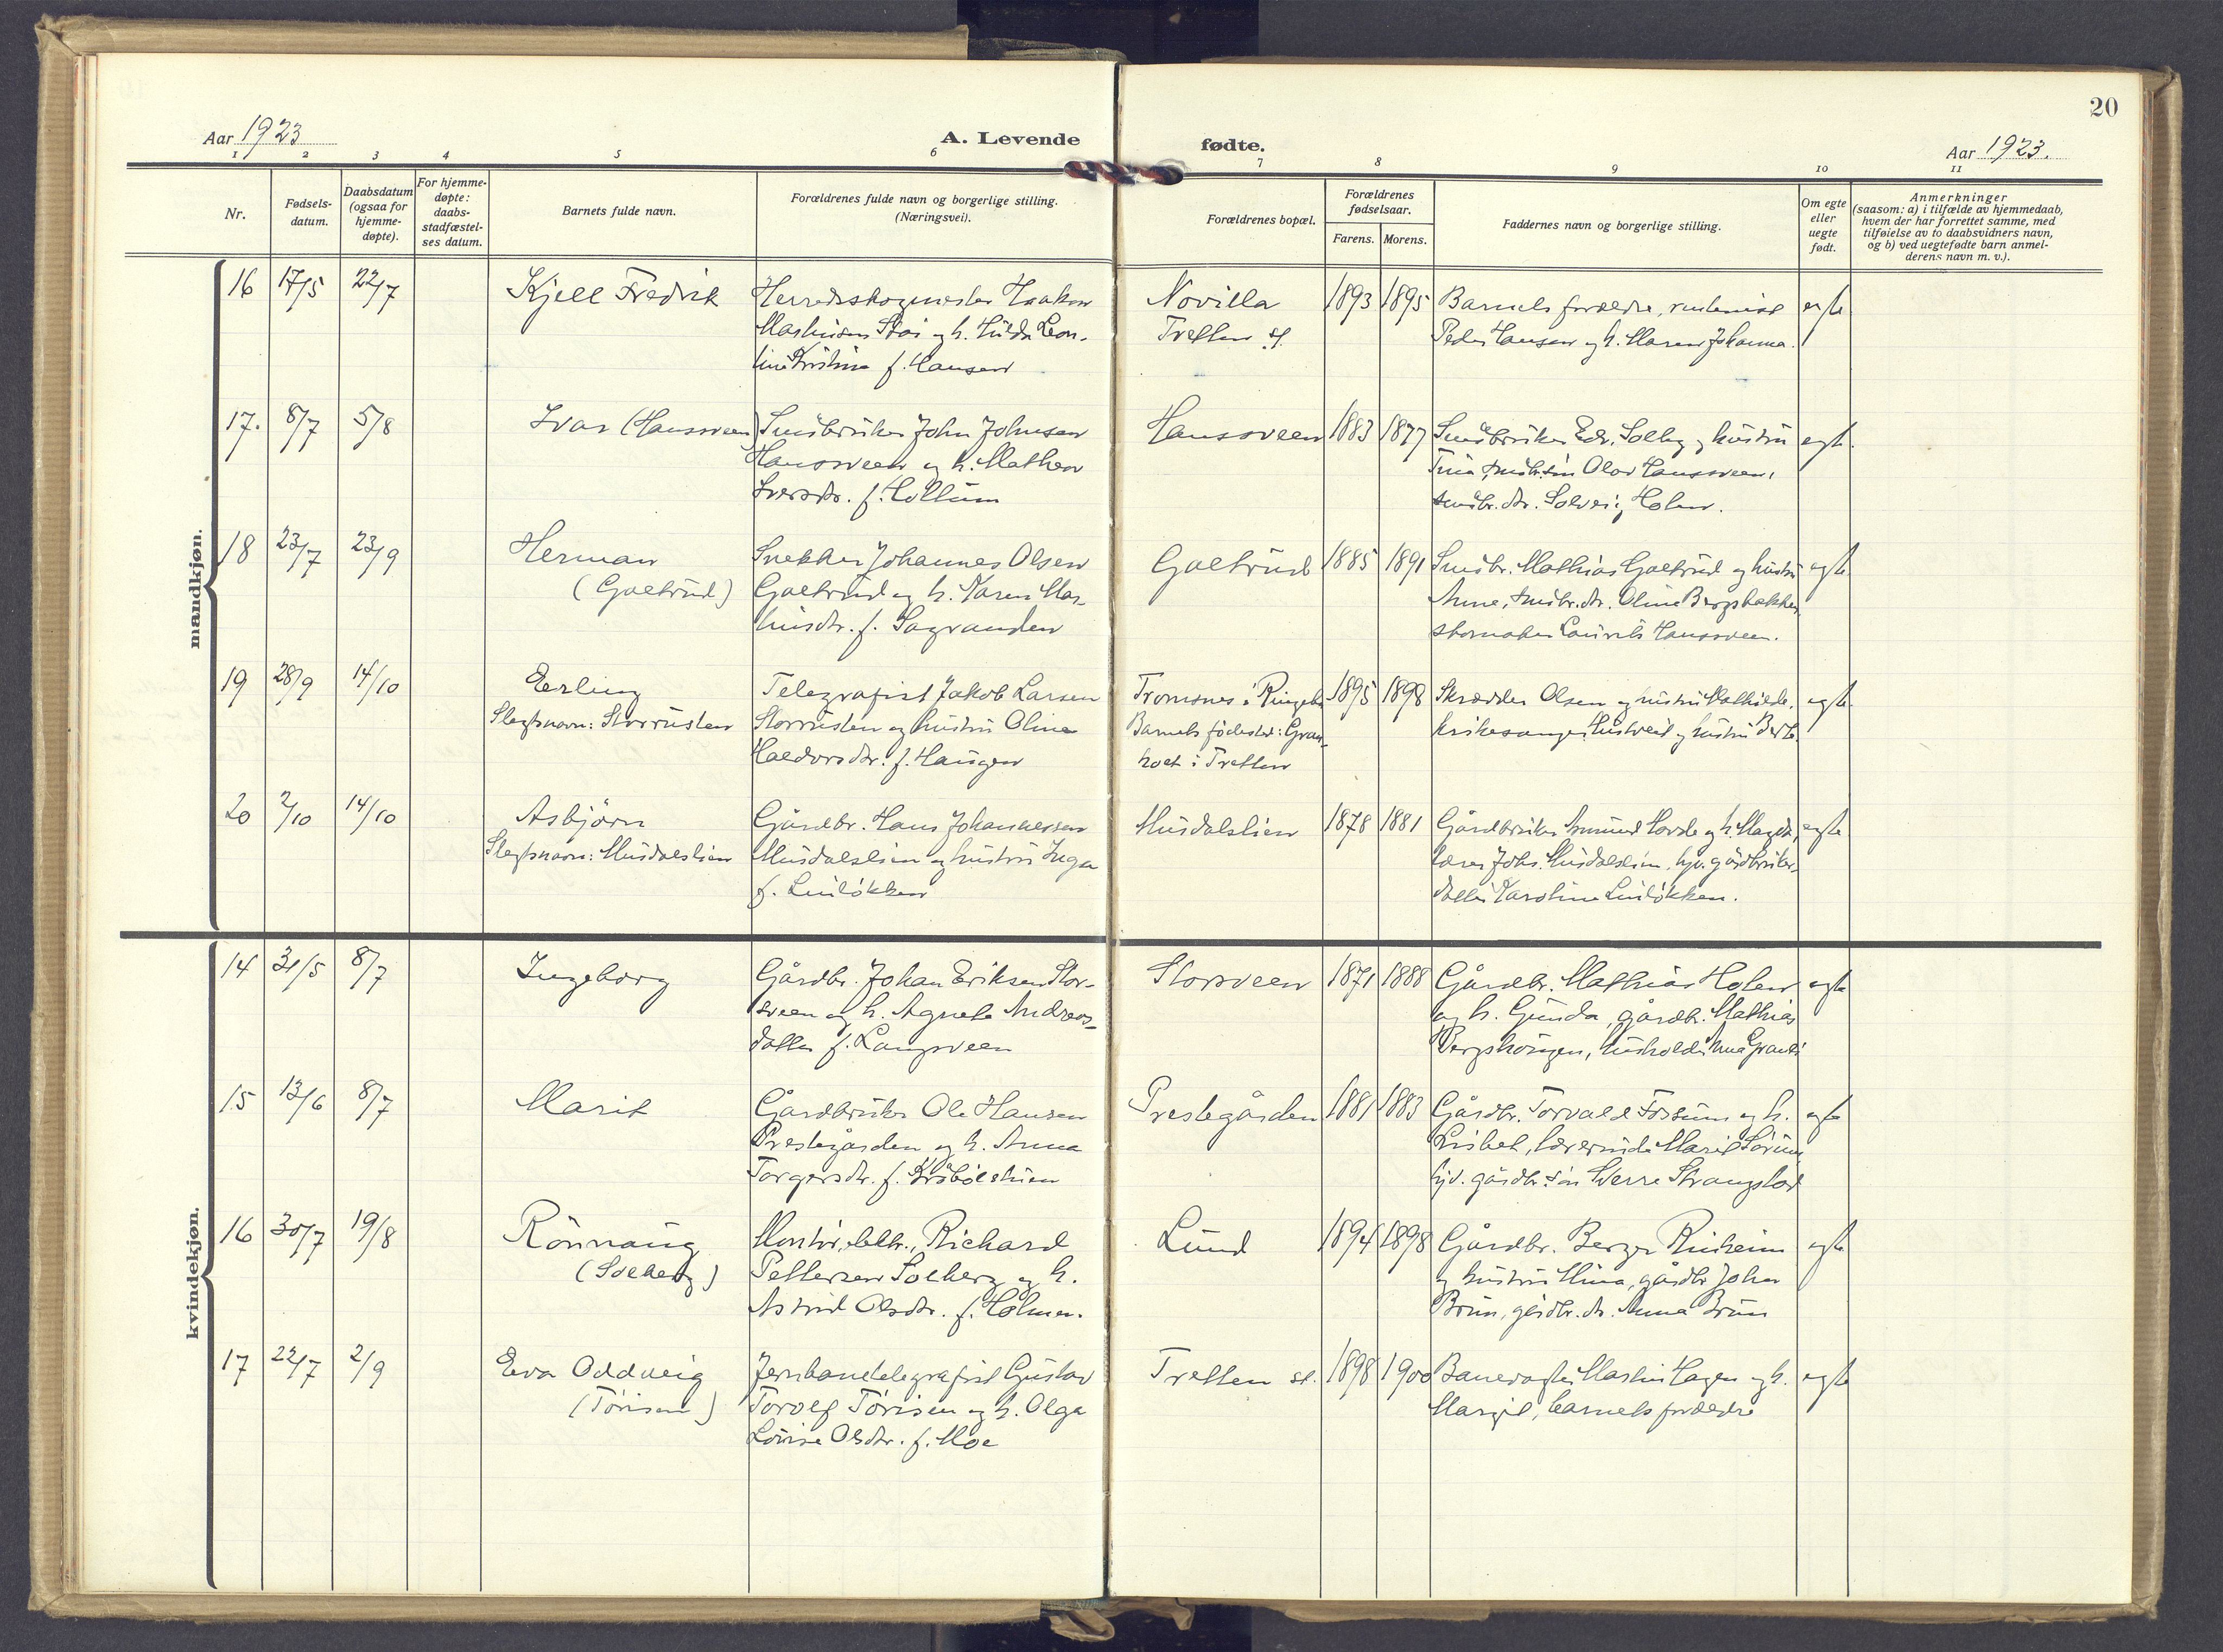 20
Aar 1923
A. Levende
fødte.
Aar 1923.
1 2 3 4 5 6 7 8 9 10 11
Nr.
Fødsels-
datum.
Daabsdatum
(ogsaa for
hjemme-
døpte).
For hjemme-
døpte:
daabs-
stadfæstel-
ses datum.
Barnets fulde navn.
Forældrenes fulde navn og borgerlige stilling.
(Næringsvei).
Forældrenes bopæl.
Forældrenes
fødselsaar.
Farens. Morens.
Faddernes navn og borgerlige stilling.
Om egte
eller
uegte
født.
Anmerkninger
(saasom: a) i tilfælde av hjemmedaab,
hvem der har forrettet samme, med
tilføielse av to daabsvidners navn,
og b) ved uegtefødte barn anmel-
derens navn m. v.).
mandkjøn.
16 17/5 22/7 Kjell Fredrik
Herredsskogmester Haakon
Mathisen Stai og h. Hilda Leon-
tine Kristine f. Hansen
Novilla
Tretten st.
1893 1895
Barnets forældre, rentenist
Peder Hansen og h. Maren Johanna.
egte
17. 8/7 5/8 Ivar (Hanssveen)
Småbruker John Johnsen
Hanssveen og h. Mathea
Iversdtr. f. Hollum
Hanssveen
1883 1877
Småbruker Edv. Solberg og hustru
Tina, småbr. søn Olav Hanssveen,
småbr. dtr. Solveig Holen.
egte
18 23/7 23/9 Herman
(Goltrud)
Snekker Johannes Olsen
Goltrud og h. Karen Mat-
hisdtr. f. Sagranden
Goltrud
1885 1891
Småbr. Mathias Goltrud og hustru
Anne, småbr. dtr. Oline Bergsbakken
skomaker Laurits Hanssveen.
egte
19 28/9 14/10 Erling
Slegtsnavn: Storrusten
Telegrafist Jakob Larsen
Storrusten og hustru Oline
Haldorsdtr. f. Haugen
Tromsnes i Ringebu
Barnets fødested: Gran-
holt i Tretten
1895 1898
Skrædder Olsen og hustru Mathilde,
kirkesanger Hustveit og hustru Berta.
egte
20 2/10 14/10 Asbjørn
Slegtsnavn: Musdalslien
Gårdbr. Hans Johannessen
Musdalslien og hustru Inga
f. Linløkken
Musdalslien
1878 1881
Gårdbruker Amund Hovde og h. Magda,
lærer Johs. Musdalslien, hjv. gårdbruker-
datter Karoline Linløkken.
egte
kvindekjøn.
14 31/5 8/7 Ingeborg
Gårdbr. Johan Eriksen Stor-
sveen og h. Agnete Andreas-
datter f. Langsveen
Storsveen
1871 1888
Gårdbr. Mathias Holen
og h. Gunda, gårdbr. Mathias
egte
15 13/6 8/7 Marit
Gårdbruker Ole Hansen
Prestegården og h. Anna
Torgersdtr. f. Kråbølstuen
Prestegården
1881 1883
Gårdbr. Torvald Fossum og h.
Lisbet, lærerinde Marit Sørum
hjv. gårdbr. søn Sverre Stranglad
egte
16 30/7 19/8 Rønnaug
(Solberg)
Montør, elktr., Richard
Pettersen Solberg og h.
Astrid Olsdtr. f. Holmen.
Lund
1894 1898
Gårdbr. Berger
og hustru Mina, gårdbr. John
Brun, gårdbr. dtr. Anna Brun
egte
17 22/7 2/9 Eva Oddveig
(Tørisen)
Jernbanetelegrafist Gustav
Torolf Tørisen og h. Olga
Lovise Olsdtr. f. Moe
Tretten st.
1898 1900
Banevogter Martin Hagen og h.
Margit, barnets forældre
egte